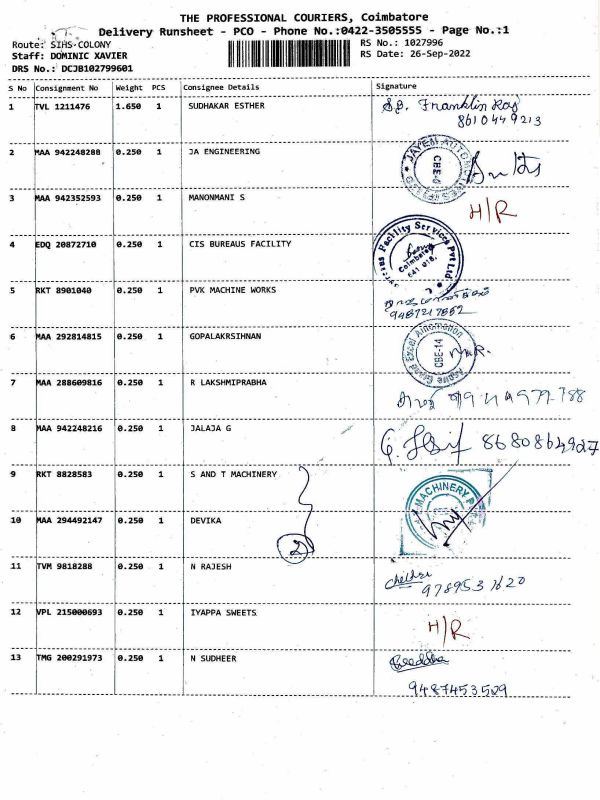 THE PROFESSIONAL COURIERS, Coimbatore
Delivery Runsheet - PCO - Phone No.:0422-3505555 - Page No.:1
Route: SIHS-COLONY
RS No.: 1027996
Staff: DOMINIC XAVIER
RS Date: 26-Sep-2022
DRS No.: DCJB102799601
S No Consignment No Weight PCS Consignee Details Signature
1 TVL 1211476 1.650 1 SUDHAKAR ESTHER Franklin Raj
8610449213
2 MAA 942248288 0.250 1 JA ENGINEERING CBE-
3 MAA 942352593 0.250 1 MANONMANI S H/R
4 EDQ 20872710 0.250 1 CIS BUREAUS FACILITY Facility Services Pvt Ltd
Coimbatore
641 018.
5 RKT 8901040 0.250 1 PVK MACHINE WORKS
6 MAA 292814815 0.250 1 GOPALAKRSIHNAN Excel Automation CBE-14
7 MAA 288609816 0.250 1 R LAKSHMIPRABHA
8 MAA 942248216 0.250 1 JALAJA G
9 RKT 8828583 0.250 1 S AND T MACHINERY MACHINERY
10 MAA 294492147 0.250 1 DEVIKA 2
11 TVM 9818288 0.250 1 N RAJESH
12 VPL 215000693 0.250 1 IYAPPA SWEETS H/R
13 TMG 200291973 0.250 1 N SUDHEER
9487453509